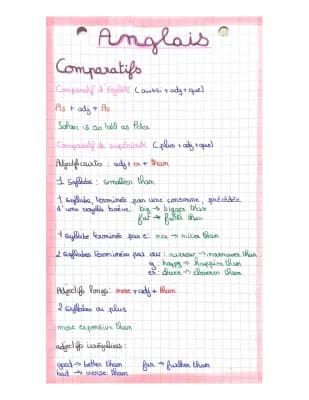 Anglais
Comparatifs
Comparatif d'égalité (aussi + adj + que)
As + adj + As
is as tall as Peter
Comparatif de supériorité (plus + adj + que)
Adjectif courts : adj + er + than
1 syllabe : smaller than
1 syllabe, terminée par une consonne, précédée
d'une voyelle brève: big → bigger than
fat → fatter than
1 syllabe terminée par e: nice → nicer than
2 syllabes terminées par ow : narrow → narrower than
y : happy → happier than
er : clever → cleverer than
Adjectifs longs : more + adj + than
2 syllabes ou plus
more expensive than
adjectifs irréguliers :
good → better than far → further than
bad → worse than